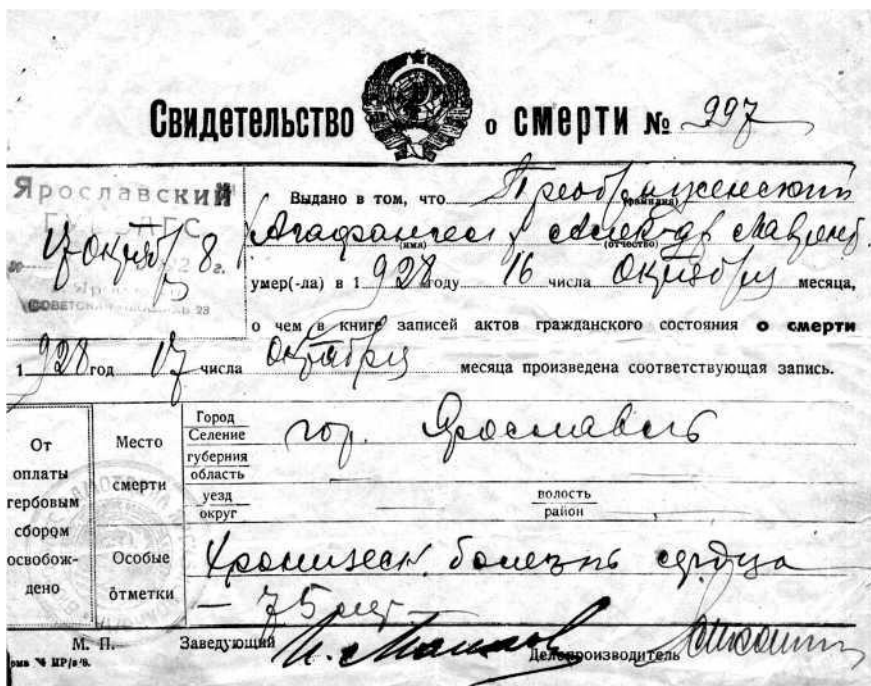 Свидетельство о смерти № 997
Ярославский
17 октябр 8 г.
Выдано в том, что Преображенский
(фамилия)
Агафангел Александр Лаврент.
(имя) (отчество)
умер(-ла) в 1928 году 16 числа Октября месяца,
о чем в книге записей актов гражданского состояния о смерти
1928 год 17 числа октября месяца произведена соответствующая запись.
От оплаты гербовым сбором освобож-дено
Место смерти
Город
Селение
губерния
область
гор. Ярославль
уезд
округ
волость
район
Особые отметки
Хроническ. болезнь сердца
— 75 лет —
М. П. Заведующий Делопроизводитель